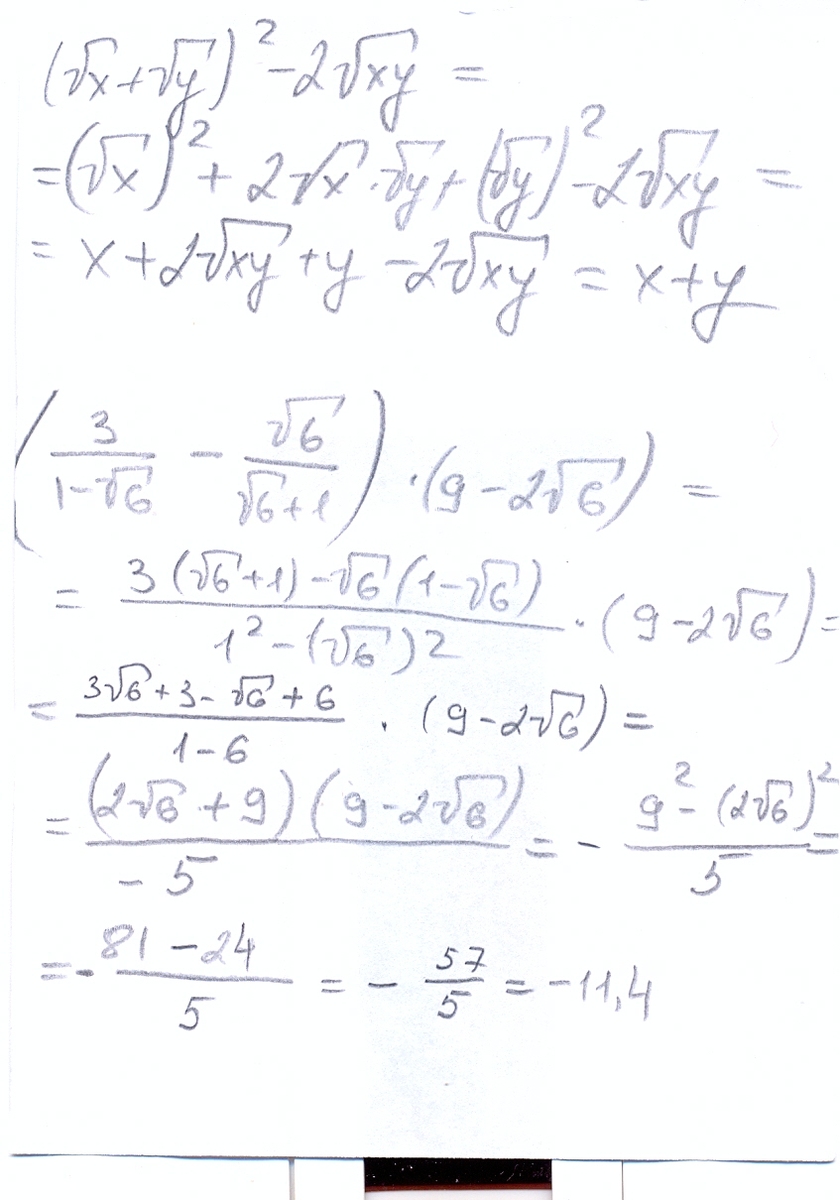 (√x+√y)² -2√xy =
=(√x)² + 2√x·√y+(√y)²-2√xy =
= x+2√xy+y -2√xy = x+y
(3/(1-√6) - √6/(√6+1)) ·(9-2√6) =
= (3(√6+1)-√6(1-√6))/(1²-(√6)2) · (9-2√6)=
= (3√6+3-√6+6)/(1-6) · (9-2√6)=
= ((2√6+9)(9-2√6))/(-5) = - (9²-(2√6)²)/5 =
=- (81-24)/5 = - 57/5 = -11,4